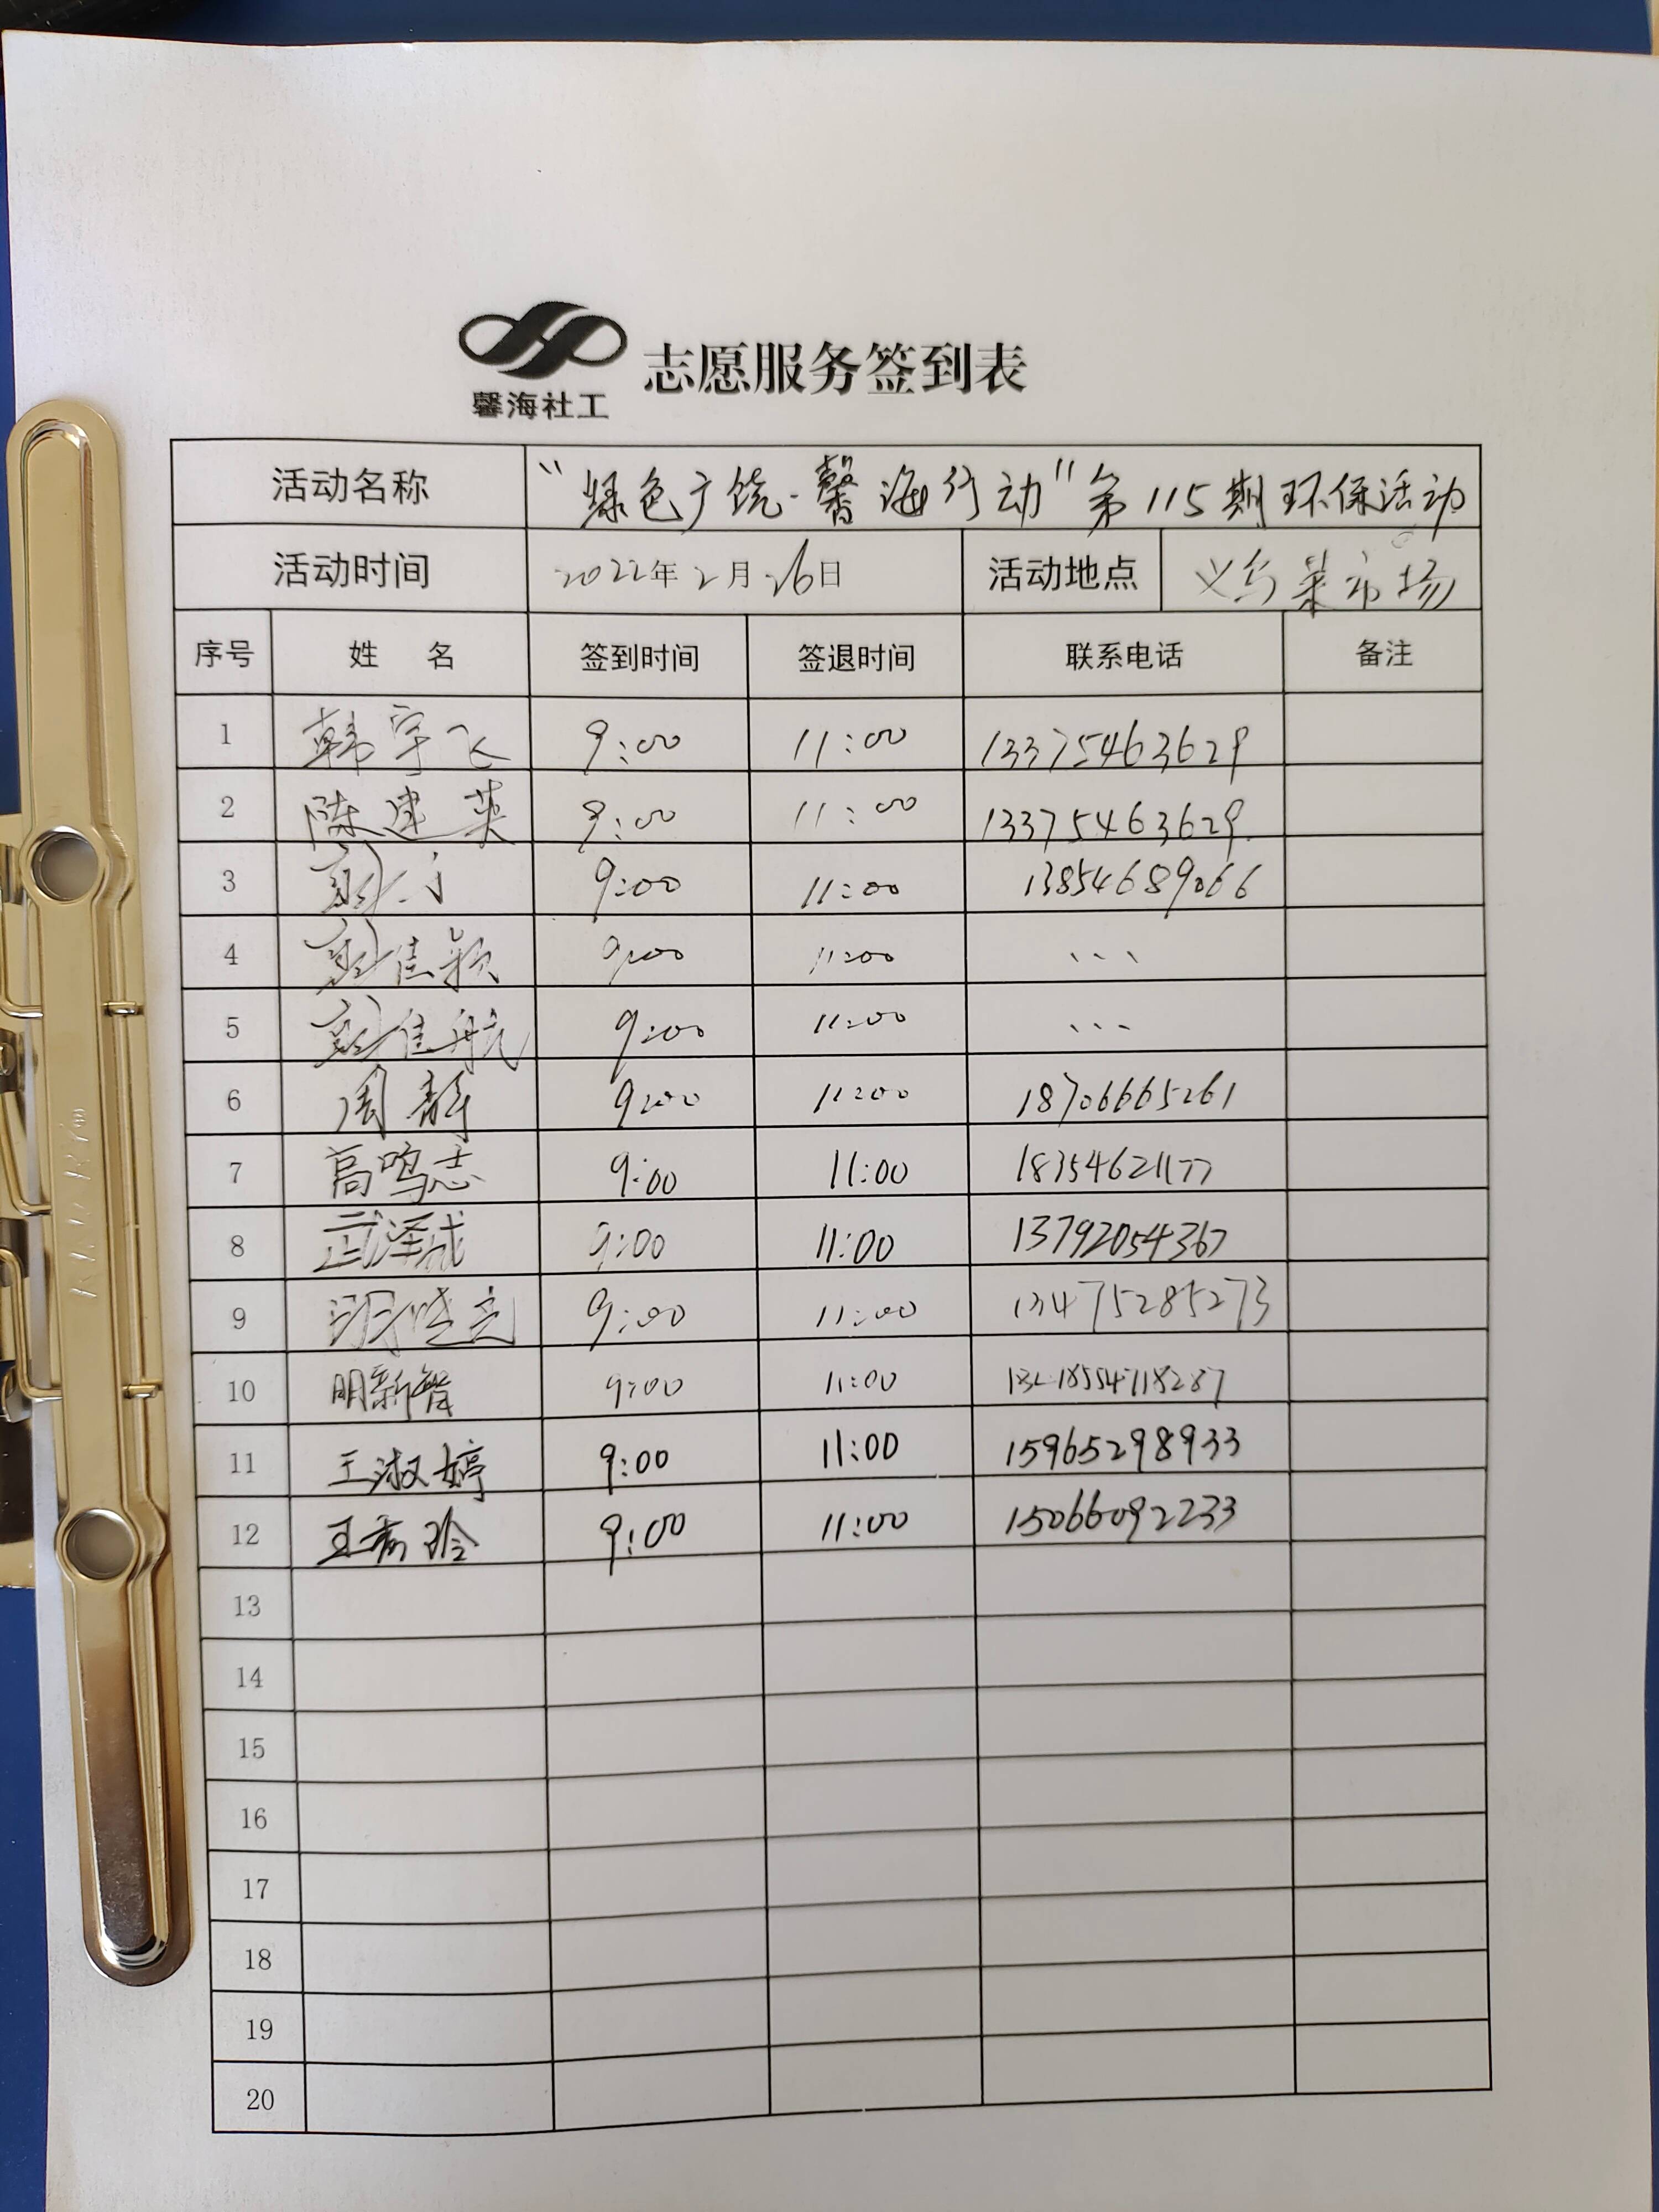 馨海社工
志愿服务签到表
活动名称 “绿色广饶·馨海行动”第115期环保活动
活动时间 2022年2月26日 活动地点 义乌菜市场
序号 姓 名 签到时间 签退时间 联系电话 备注
1 韩宇飞 9:00 11:00 13375463629
2 陈建英 9:00 11:00 13375463629
3 9:00 11:00 13854689066
4 佳颖 9:00 11:00 ...
5 佳航 9:00 11:00 ...
6 周静 9:00 11:00 18706665261
7 高鸣志 9:00 11:00 18354621177
8 武泽成 9:00 11:00 13792054367
9 9:00 11:00 13475285273
10 明新智 9:00 11:00 18554718287
11 王淑婷 9:00 11:00 15965298933
12 王秀玲 9:00 11:00 15066092233
13
14
15
16
17
18
19
20